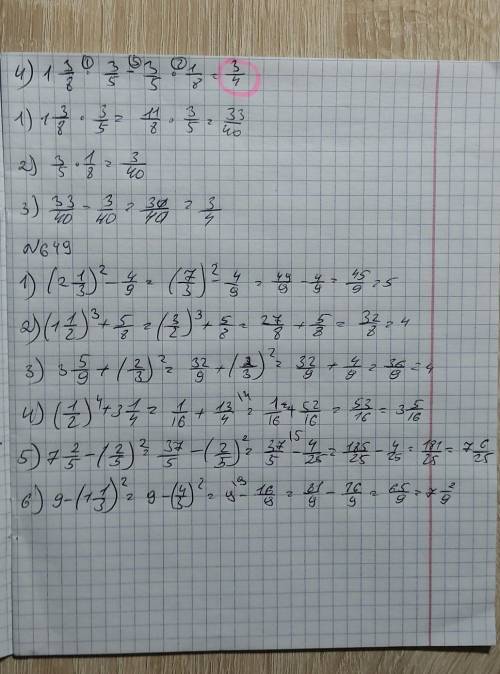 4) 1 3/8 · 3/5 - 3/5 · 1/8 = 3/4
1) 1 3/8 · 3/5 = 11/8 · 3/5 = 33/40
2) 3/5 · 1/8 = 3/40
3) 33/40 - 3/40 = 30/40 = 3/4
№649
1) (2 1/3)² - 4/9 = (7/3)² - 4/9 = 49/9 - 4/9 = 45/9 = 5
2) (1 1/2)³ + 5/8 = (3/2)³ + 5/8 = 27/8 + 5/8 = 32/8 = 4
3) 3 5/9 + (2/3)² = 32/9 + (2/3)² = 32/9 + 4/9 = 36/9 = 4
4) (1/2)⁴ + 3 1/4 = 1/16 + 13/4 = 1/16 + 52/16 = 53/16 = 3 5/16
5) 7 2/5 - (2/5)² = 37/5 - (2/5)² = 37/5 - 4/25 = 185/25 - 4/25 = 181/25 = 7 6/25
6) 9 - (1 1/3)² = 9 - (4/3)² = 9 - 16/9 = 81/9 - 16/9 = 65/9 = 7 2/9